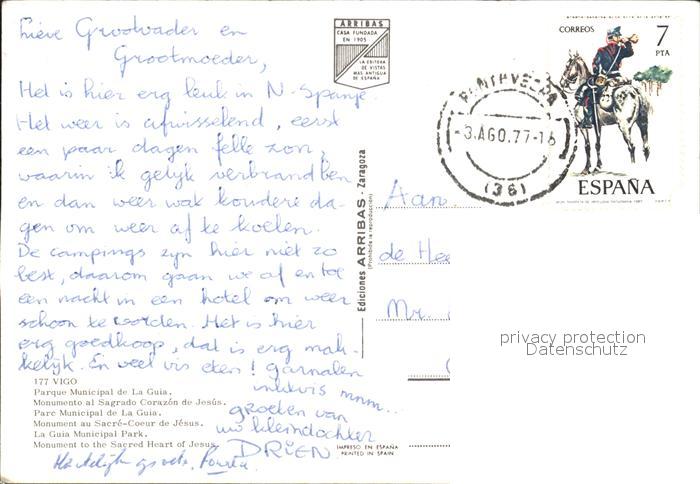 Lieve Grootvader en
Grootmoeder,
Het is hier erg leuk in N-Spanje.
Het weer is afwisselend, eerst
een paar dagen felle zon,
waarin ik gelijk verbrand ben
en dan weer wat koudere da-
gen om weer af te koelen.
De campings zijn hier niet zo
best, daarom gaan we af en toe
een nacht in een hotel om weer
schoon te worden. Het is hier
erg goedkoop, dat is erg mak-
kelijk. En veel vis eten! garnalen
inktvis mnm...
groeten van
uw kleindochter
DRIEN.
Hartelijk
177 VIGO
Parque Municipal de La Guia.
Monumento al Sagrado Corazón de Jesús.
Parc Municipal de La Guia.
Monument au Sacré-Coeur de Jésus.
La Guia Municipal Park.
Monument to the Sacred Heart of Jesus.
ARRIBAS
CASA FUNDADA
EN 1905
LA EDITORA
DE VISTAS
MAS ANTIGUA
DE ESPAÑA
Ediciones ARRIBAS - Zaragoza
(Prohibida la reproducción)
IMPRESO EN ESPAÑA
PRINTED IN SPAIN
CORREOS
7
PTA
ESPAÑA
PONTEVEDRA
-3.AGO.77-16
(36)
Aan
de Hee
Mr.
privacy protection
Datenschutz